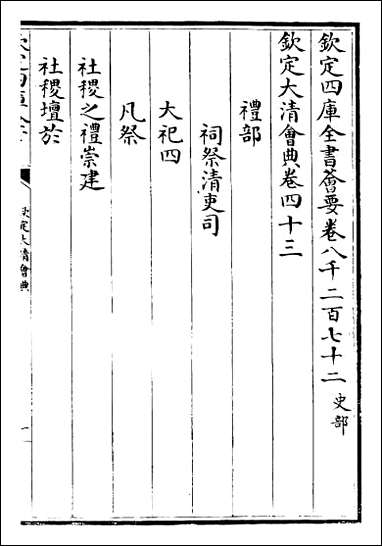 欽定四庫全書薈要卷八千二百七十二 史部
欽定大清會典卷四十三
禮部
祠祭清吏司
大祀四
凡祭
社稷之禮崇建
社稷壇於
欽定大清會典
一